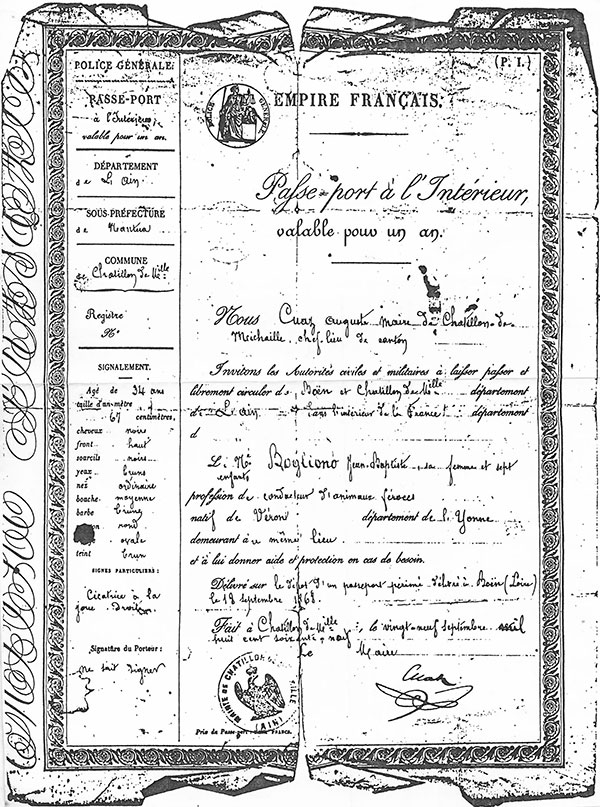 POLICE GÉNÉRALE.
PASSE-PORT
à l'Intérieur,
valable pour un an.
DÉPARTEMENT
de L'Ain
SOUS-PRÉFECTURE
de Nantua
COMMUNE
de Chatillon de Mlle
Registre
No
SIGNALEMENT.
Agé de 34 ans
taille d'un mètre
67 centimètres,
cheveux noirs
front haut
sourcils noirs
yeux bruns
nez ordinaire
bouche moyenne
barbe brune
rond
ovale
teint brun
SIGNES PARTICULIERS :
Cicatrice à la
joue droite
Signature du Porteur :
ne sait signer
(P. I.)
POLICE GÉNÉRALE
EMPIRE FRANÇAIS.
Passe-port à l'Intérieur,
valable pour un an.
Nous Cuaz Auguste maire de Chatillon-de-
Michaille, chef lieu de canton
Invitons les Autorités civiles et militaires à laisser passer et
librement circuler de Boën et Chatillon de Mlle département
de L'Ain et dans l'intérieur de la France département
d
L. Né Boglionò Jean-Baptiste, sa femme et sept
enfants
profession de conducteur d'animaux féroces
natif de Véron département de l'Yonne
demeurant à même lieu.
et à lui donner aide et protection en cas de besoin.
Délivré sur le dépôt d'un passeport périmé délivré à Boën (Loire)
le 18 septembre 1868.
Fait à Chatillon de Mlle, le vingt-neuf septembre mil
huit cent soixante-neuf
Le Maire
Cuaz
MAIRIE DE CHATILLON DE MICHAILLE
(AIN)
Prix du Passe-port FRANCS.